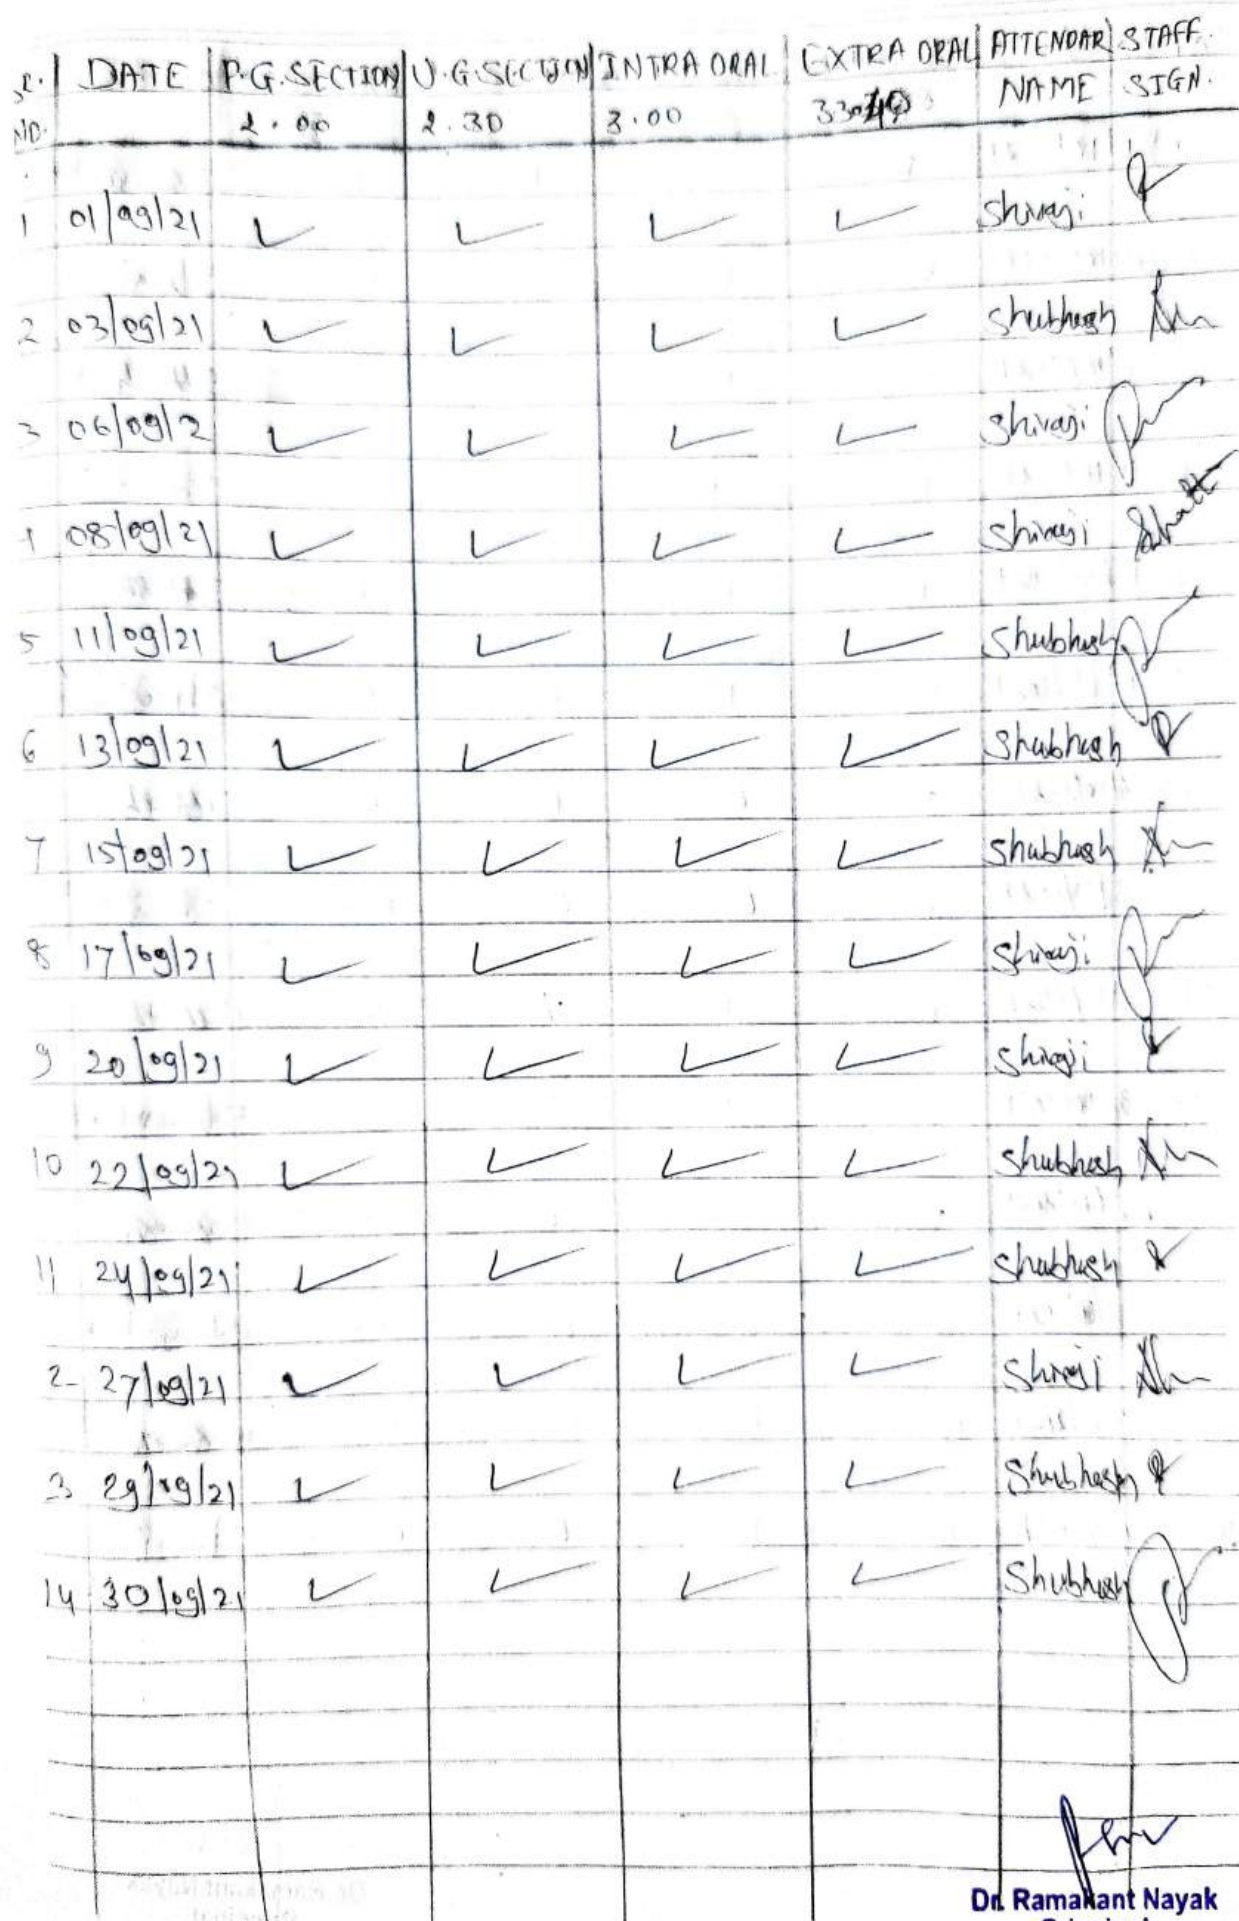 SR. NO. | DATE | P.G. SECTION 2.00 | U.G. SECTION 2.30 | INTRA ORAL 3.00 | EXTRA ORAL | ATTENDAR NAME | STAFF SIGN.
1 01/09/21 ✓ ✓ ✓ ✓ Shivaji
2 03/09/21 ✓ ✓ ✓ ✓ Shubhash
3 06/09/2 ✓ ✓ ✓ ✓ Shivaji
08/09/21 ✓ ✓ ✓ ✓ Shivaji
5 11/09/21 ✓ ✓ ✓ ✓ Shubhash
6 13/09/21 ✓ ✓ ✓ ✓ Shubhash
7 15/09/21 ✓ ✓ ✓ ✓ Shubhash
8 17/09/21 ✓ ✓ ✓ ✓ Shivaji
9 20/09/21 ✓ ✓ ✓ ✓ Shivaji
10 22/09/21 ✓ ✓ ✓ ✓ Shubhash
11 24/09/21 ✓ ✓ ✓ ✓ Shubhash
2 27/09/21 ✓ ✓ ✓ ✓ Shivaji
3 29/09/21 ✓ ✓ ✓ ✓ Shubhash
14 30/09/21 ✓ ✓ ✓ ✓ Shubhash
Dr. Ramakant Nayak